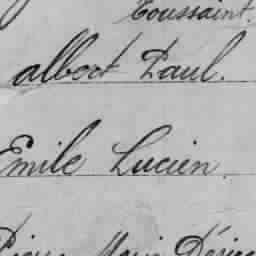 Toussaint.
Albert Paul.
Emile Lucien.
Marie Désiré